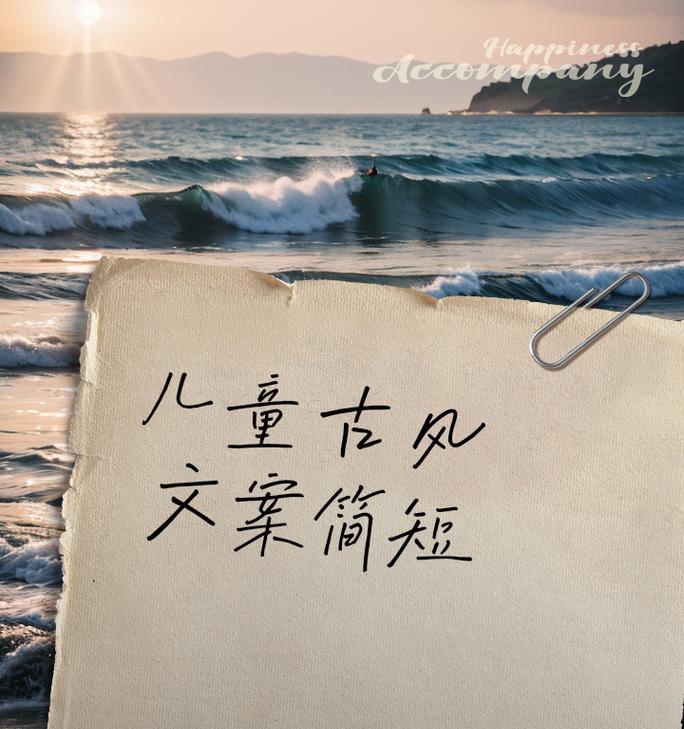 Happiness
Accompany
儿童古风
文案简短